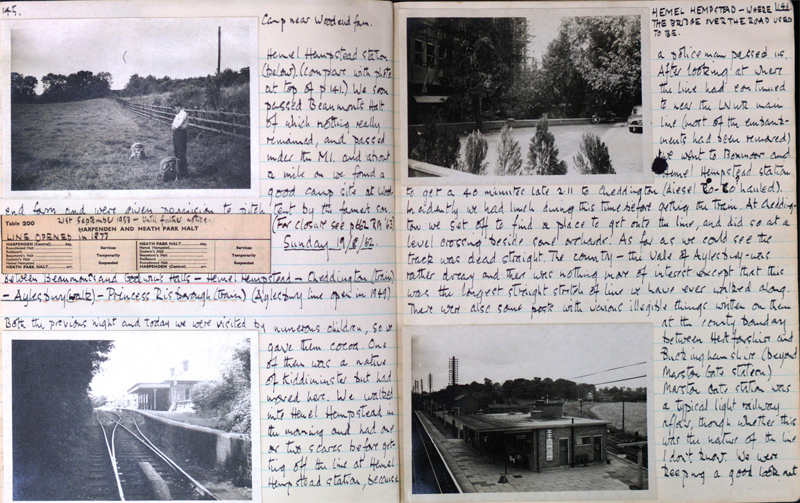 145.
Camp near Woodend farm.
Hemel Hempstead station
(below). (compare with photo
at top of p 141.) We soon
passed Beaumonts Halt
of which nothing really
remained, and passed
under the M1. and about
a mile on we found a
good camp site at Wood
end farm and were given permission to pitch tent by the farmer's son.
(For closure see p
Sunday 19/8/62.
Table 200
21st September 1958 - Until further notice.
HARPENDEN AND HEATH PARK HALT
LINE OPENED in 1877
HARPENDEN (Central)
Services
Temporarily
Suspended
HEATH PARK HALT
HARPENDEN (Central)
Services
Temporarily
Suspended
Between Beaumonts and Godwins Halts - Hemel Hempstead - Cheddington (train)
- Aylesbury (walk) - Princess Risborough (train) (Aylesbury line open in 1949)
Both the previous night and today we were visited by numerous children, so we
gave them cocoa. One
of them was a native
of Kidderminster but had
moved here. We walked
into Hemel Hempstead in
the morning and had one
or two scares before get-
ting off the line at Hemel
Hempstead station, because
HEMEL HEMPSTEAD - WHERE
THE BRIDGE OVER THE ROAD USED
TO BE.
a policeman passed us.
After looking at where
the line had continued
to near the LNWR main
line (most of the embank-
ments had been removed)
we went to Boxmoor and
Hemel Hempstead station
to get a 40 minutes late 2.11 to Cheddington (diesel hauled).
Incidently we had lunch during this time before getting the train. At Chedding-
ton we set off to find a place to get onto the line, and did so at a
level crossing beside some orchards. As far as we could see the
track was dead straight. The country - the Vale of Aylesbury - was
rather dreary and there was nothing more of interest except that this
was the longest straight stretch of line we have ever walked along.
There were also some posts with various illegible things written on them
at the county boundary
between Hertfordshire and
Buckinghamshire (beyond
Marston Gate station)
Marston Gate station was
a typical light railway
affair, though whether this
was the nature of the line
I don't know. We were
keeping a good look out